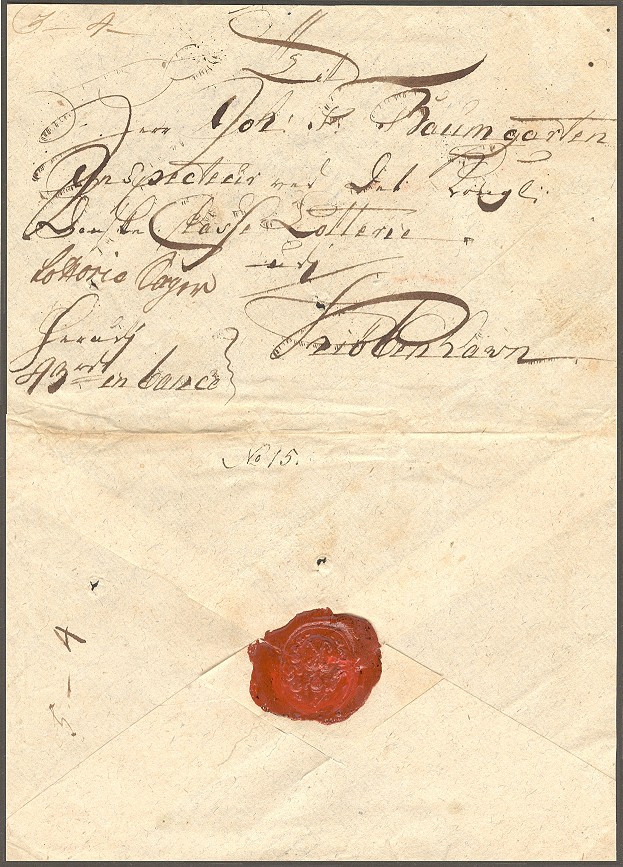 Herr Joh: F. Baumgarten
Inspecteur ved Det Kongl:
Danske Classe Lotterie
udi
Kiöbenhavn
Lotterie Sager
Herudi
43 rd en banco
No 15.
5 - 4